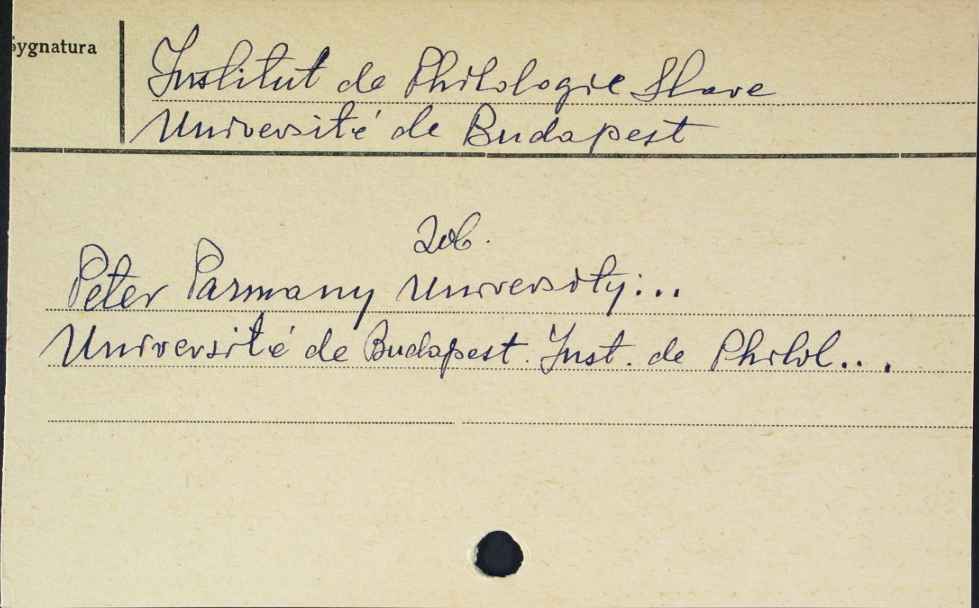 Sygnatura
Institut de Philologie Slave
Université de Budapest
Zob.
Peter Parmany University...
Université de Budapest. Inst. de Philol...